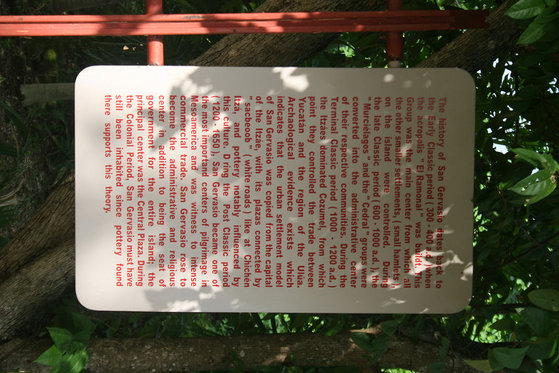 The history of San Gervasio dates back to
the Early Classic period (300 - 600 a.d.) when
the acropolis or "El Ramonal" was built. This
Group was the main center from which all
the other settlements, (small hamlets)
on the island were controlled. During
the Late Classic Period (600 - 1000 a.d.) the
"Murcielagos" and "Pechdeche" groups were
converted into the administrative center
of their respective communities. During the
Terminal Classic Period (1000 - 1200 a.d.)
the Itzaes dominated Cozumel from which
point they controlled the trade between
Yucatán and the region of the Ulua.
Archaeological evidence exists which
indicates that the urban settlement model
of San Gervasio was copied from the capital
of the Itzae, with its plazas connected by
"sacbeoob" (white roads) like at Chichen
Itza, and pottery notably influenced by
this culture. During the Post Classic period
(1200 - 1650), San Gervasio became one of
the most important centers of pilgrimage in
Mesoamerica and was witness to intense
commercial trade. San Gervasio rose to
become the administrative and religious
center in addition to being the seat of
government for the entire island; the
principal core was the Central Plaza. During
the Colonial Period, San Gervasio must have
still been inhabited since pottery found
there supports this theory.